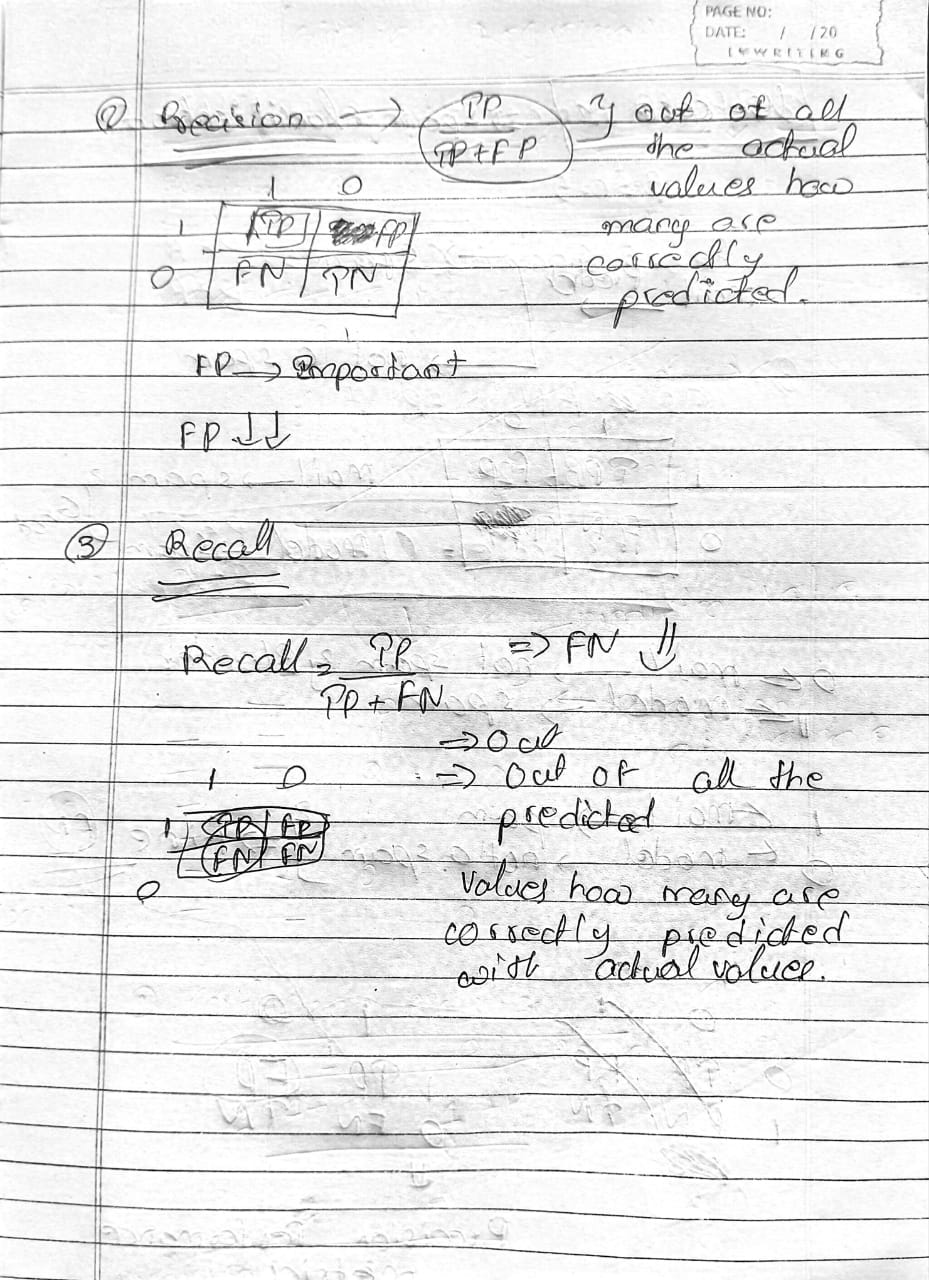 PAGE NO:
DATE: / /20
② Precision → TP / TP + FP } out of all
the actual
values how
many are
correctly
predicted.
1 0
1 TP FP
0 FN TN
FP → Important
FP ↓↓
③ Recall
Recall = TP / TP + FN ⇒ FN ⇓
⇒ Out
1 0 ⇒ Out of all the
predicted
1 TP FP
FN FN
0
values how many are
correctly predicted
with actual values.